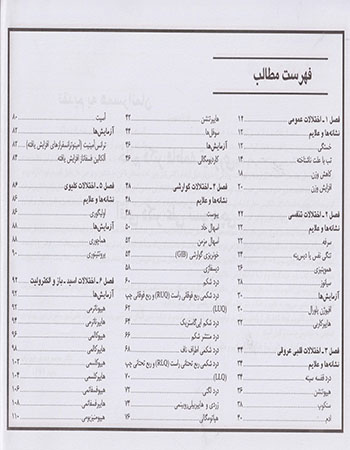 فهرست مطالب
فصل ۱ـ اختلالات عمومی ۱۴
نشانه‌ها و علایم ۱۴
خستگی ۱۴
تب با علت ناشناخته ۱۴
کاهش وزن ۱۸
افزایش وزن ۲۰
فصل ۲ـ اختلالات تنفسی ۲۲
نشانه‌ها و علایم ۲۲
سرفه ۲۲
تنگی نفس یا دیس‌پنه ۲۴
هموپتیزی ۲۶
سیانوز ۲۸
آزمایش‌ها ۳۰
افیوژن پلورال ۳۰
هایپرکاربی ۳۲
فصل ۳ـ اختلالات قلبی عروقی ۳۴
نشانه‌ها و علایم ۳۴
درد قفسه سینه ۳۴
هیپوتنشن ۳۶
سنکوپ ۳۸
ادم ۴۰
هایپرتنشن ۴۲
سوفل‌ها ۴۴
آزمایش‌ها ۴۶
کاردیومگالی ۴۶
فصل ۴ـ اختلالات گوارشی ۴۸
نشانه‌ها و علایم ۴۸
یبوست ۴۸
اسهال حاد ۵۰
اسهال مزمن ۵۲
خونریزی گوارشی (GIB) ۵۴
دیسفاژی ۵۸
درد شکم ۶۰
درد شکمی ربع فوقانی راست (RUQ) و ربع فوقانی چپ
(LUQ) ۶۲
درد شکم اپی‌گاستریک ۶۴
درد منتشر شکم ۶۶
درد شکمی اطراف ناف ۶۸
درد شکمی ربع تحتانی راست (RLQ) و ربع تحتانی چپ
(LLQ) ۷۰
درد لگنی ۷۲
زردی و هایپربیلی‌روبینمی ۷۴
هپاتومگالی ۷۶
آسیت ۸۰
آزمایش‌ها ۸۲
ترانس‌آمینیت (آمینوترانسفرازهای افزایش یافته) ۸۲
آلکالین فسفاتاز افزایش یافته ۸۴
فصل ۵ـ اختلالات کلیوی ۸۶
نشانه‌ها و علایم ۸۶
اولیگوری ۸۶
آزمایش‌ها ۸۸
هماچوری ۸۸
پروتئینوری ۹۰
فصل ۶ـ اختلالات اسید ـ باز و الکترولیت ۹۲
آزمایش‌ها ۹۲
هیپوناترمی ۹۲
هایپرناترمی ۹۴
هیپوکالمی ۹۶
هایپرکالمی ۹۸
هیپوکلسمی ۱۰۲
هایپرکلسمی ۱۰۴
هیپوفسفاتمی ۱۰۶
هایپرفسفاتمی ۱۰۸
هیپومنیزیومی ۱۱۰